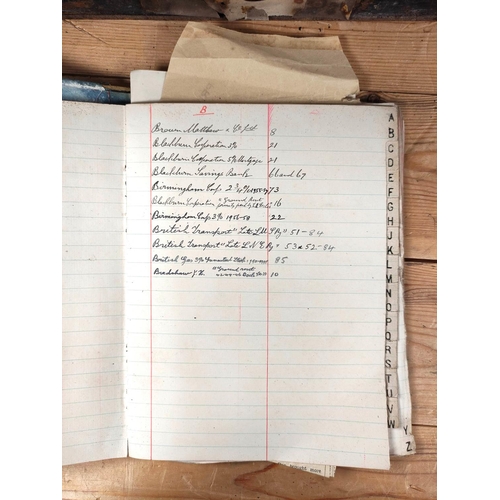 B
Brown Matthew & Co Ltd 8
Blackburn Corporation 3% 21
Blackburn Corporation 5% Mortgage 21
Blackburn Savings Bank 66 and 67
Birmingham Corp. 2 3/4% 73
Blackburn Corporation "Ground Rent 16
Birmingham Corp 3% 1956-58 22
British Transport "Late L.M. S Rly" 51-84
British Transport "Late L.N.E. Rly" 53 & 52-84
British Gas 3% Guaranteed Stock 85
Bradshaw J.H. "Ground rent 10
A
B
C
D
E
F
G
H
I
J
K
L
M
N
O
P
Q
R
S
T
U
V
W
Y
Z